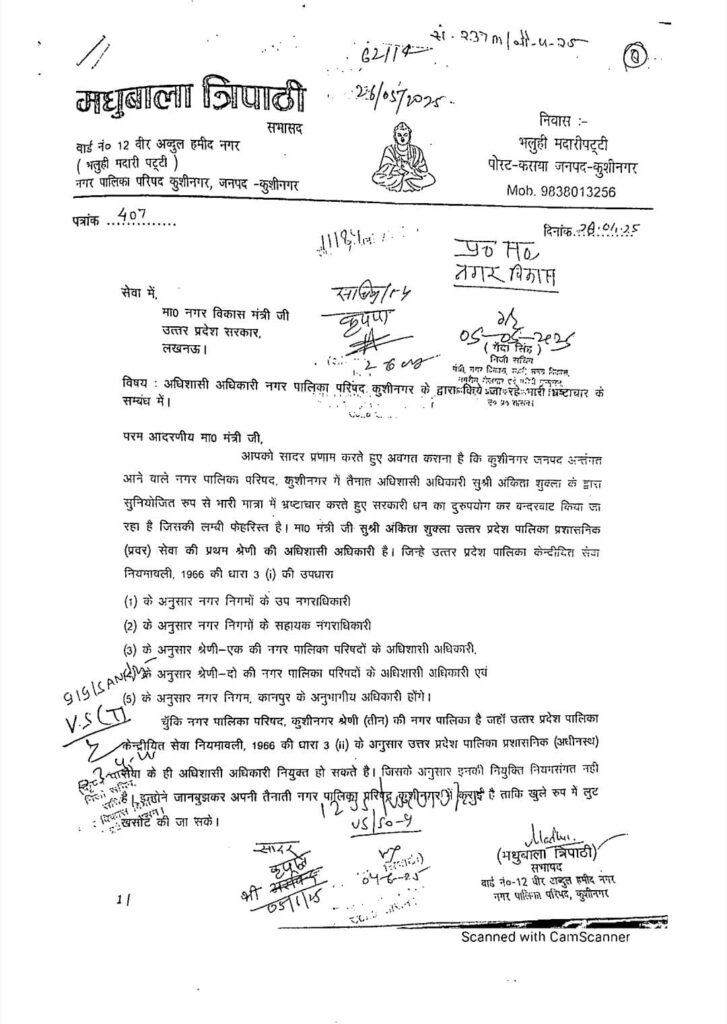 सं- 237m/
6211P
26/05/2025
मधुबाला त्रिपाठी
सभासद
वार्ड नं० 12 वीर अब्दुल हमीद नगर
( भलुही मदारी पट्टी )
नगर पालिका परिषद कुशीनगर, जनपद -कुशीनगर
निवास :-
भलुही मदारीपट्टी
पोस्ट-कसया जनपद-कुशीनगर
Mob. 9838013256
पत्रांक 407
दिनांक 28.04.25
प्र० स०
नगर विकास
सेवा में,
मा0 नगर विकास मंत्री जी
उत्तर प्रदेश सरकार,
लखनऊ।
कृपया
05-05-2025
निजी सचिव
विषय : अधिशासी अधिकारी नगर पालिका परिषद कुशीनगर के द्वारा किये जा रहे भारी भ्रष्टाचार के
सम्बंध में।
परम आदरणीय मा0 मंत्री जी,
आपको सादर प्रणाम करते हुए अवगत कराना है कि कुशीनगर जनपद अर्न्तगत
आने वाले नगर पालिका परिषद, कुशीनगर में तैनात अधिशासी अधिकारी सुश्री अंकिता शुक्ला के द्वारा
सुनियोजित रुप से भारी मात्रा में भ्रष्टाचार करते हुए सरकारी धन का दुरुपयोग कर बन्दरबाट किया जा
रहा है जिसकी लम्बी फेहरिस्त है। मा0 मंत्री जी सुश्री अंकिता शुक्ला उत्तर प्रदेश पालिका प्रशासनिक
(प्रवर) सेवा की प्रथम श्रेणी की अधिशासी अधिकारी है। जिन्हे उत्तर प्रदेश पालिका केन्द्रीयित सेवा
नियमावली, 1966 की धारा 3 (i) की उपधारा
(1) के अनुसार नगर निगमों के उप नगराधिकारी
(2) के अनुसार नगर निगमों के सहायक नगराधिकारी
(3) के अनुसार श्रेणी-एक की नगर पालिका परिषदों के अधिशासी अधिकारी,
के अनुसार श्रेणी-दो की नगर पालिका परिषदों के अधिशासी अधिकारी एवं
(5) के अनुसार नगर निगम, कानपुर के अनुभागीय अधिकारी होंगे।
V.S(T)
चुँकि नगर पालिका परिषद, कुशीनगर श्रेणी (तीन) की नगर पालिका है जहाँ उत्तर प्रदेश पालिका
केन्द्रीयित सेवा नियमावली, 1966 की धारा 3 (ii) के अनुसार उत्तर प्रदेश पालिका प्रशासनिक (अधीनस्थ)
सेवा के ही अधिशासी अधिकारी नियुक्त हो सकते है। जिसके अनुसार इनकी नियुक्ति नियमसंगत नही
है। इन्होने जानबुझकर अपनी तैनाती नगर पालिका परिषद कुशीनगर में कराई है ताकि खुले रुप में लुट
खसोट की जा सके।
सादर
कृपया
श्री
05/1/25
VS/50-9
04-6-25
Madhu.
(मधुबाला त्रिपाठी)
सभाषद
वार्ड नं0-12 वीर अब्दुल हमीद नगर
नगर पालिका परिषद, कुशीनगर
1/
Scanned with CamScanner